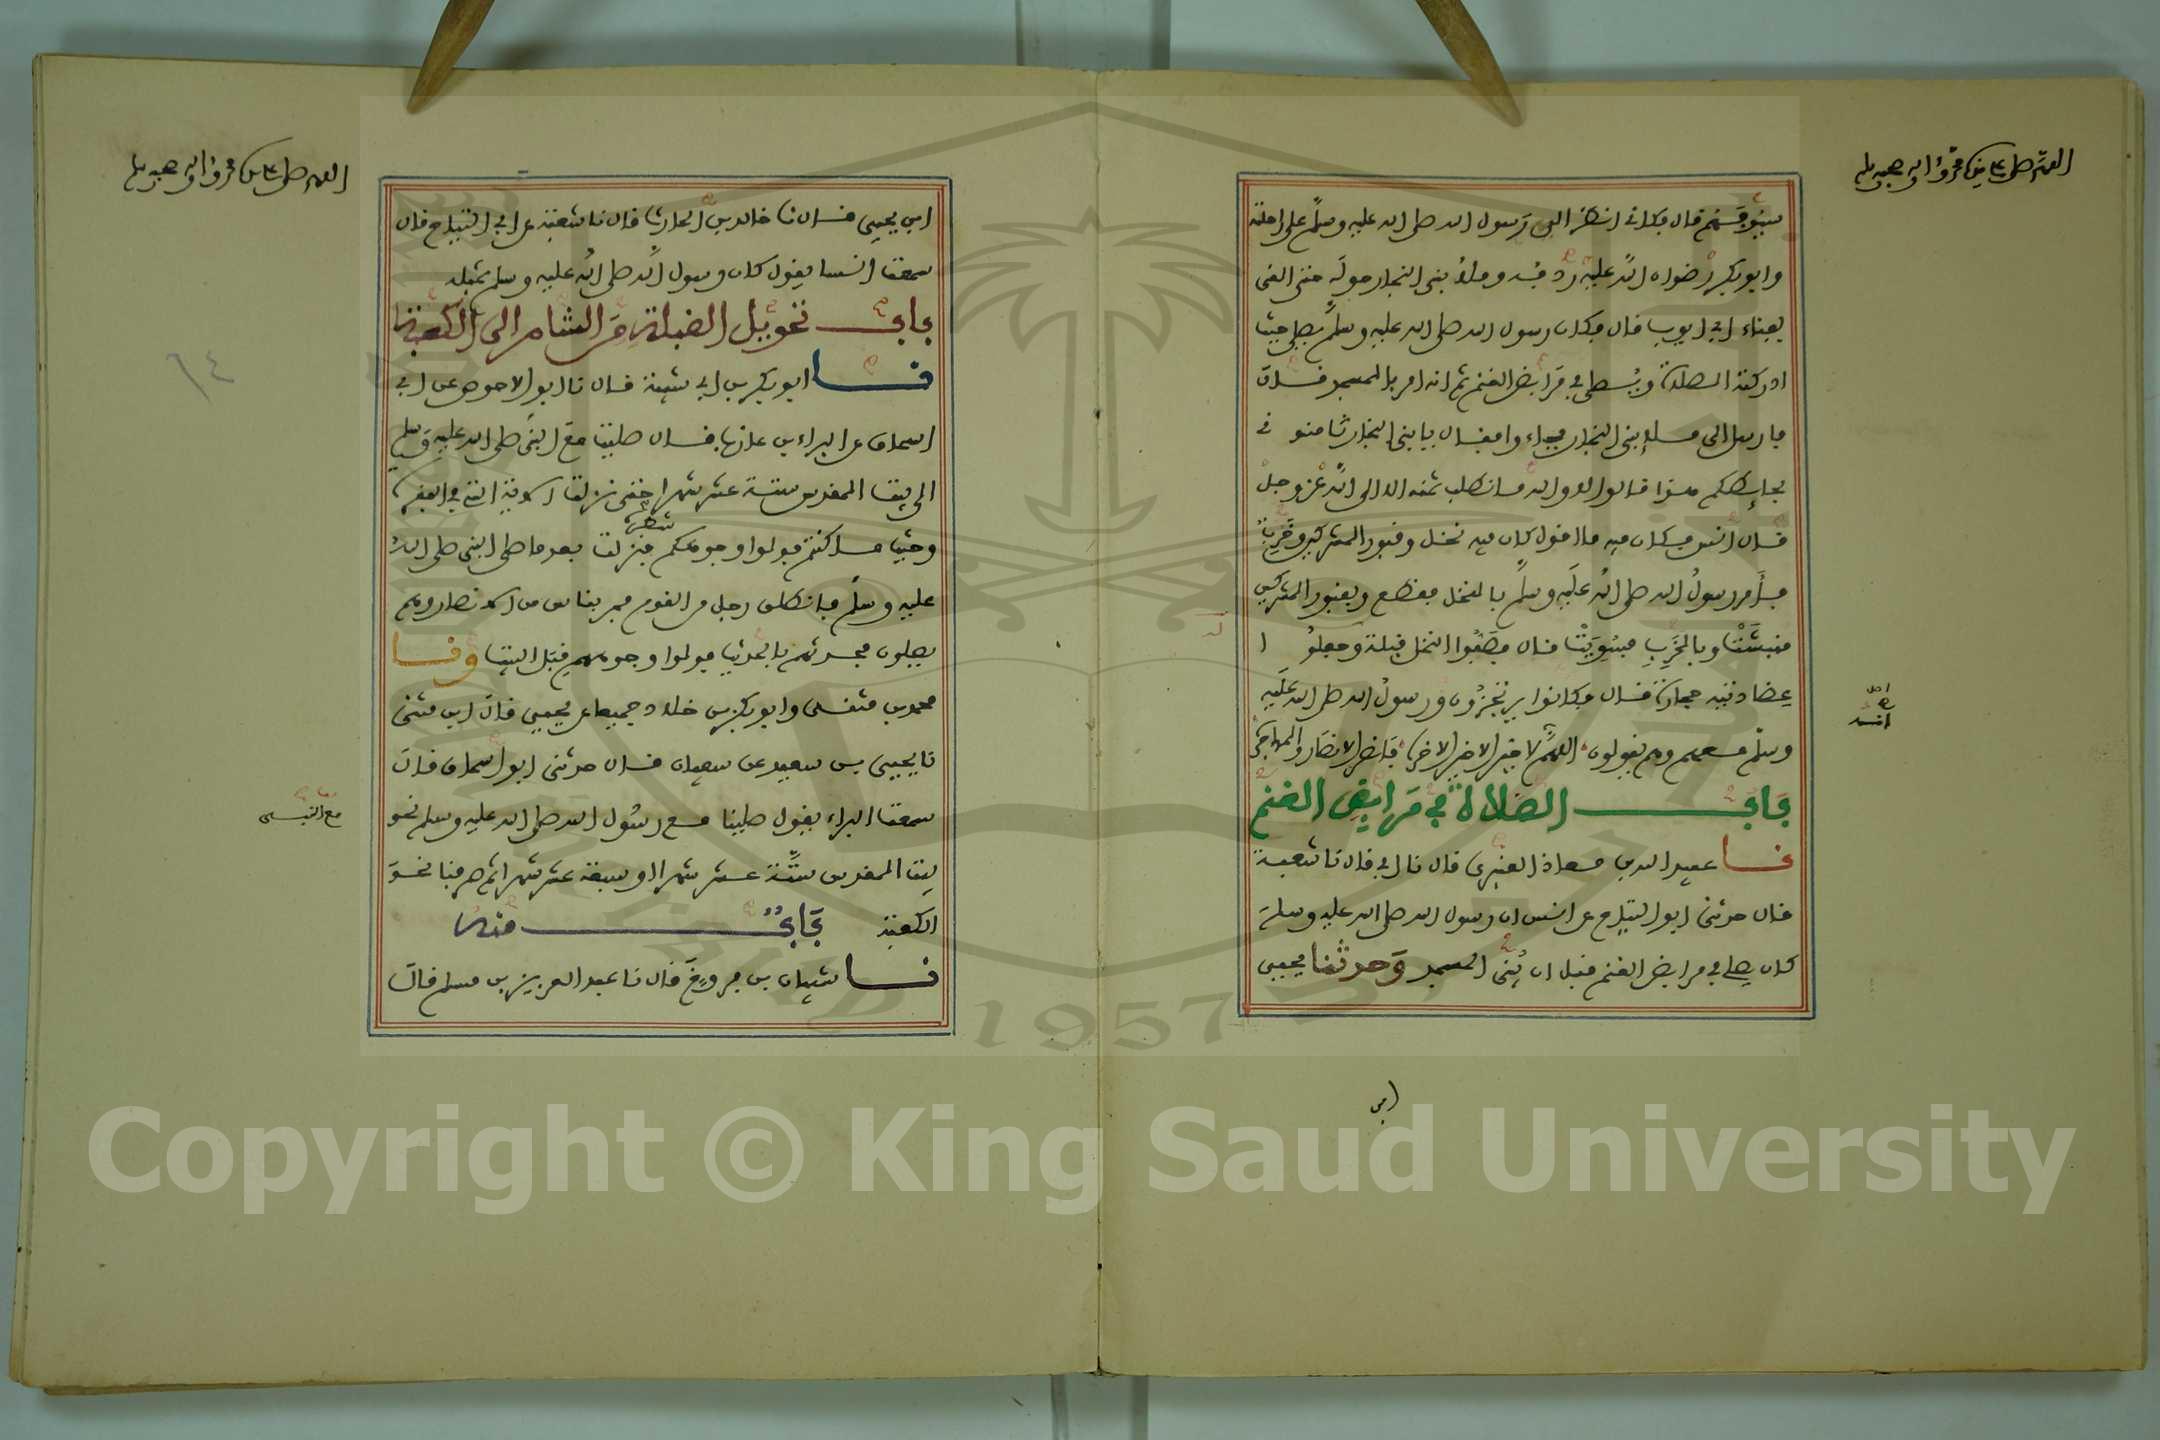 اللهم صل على سيدنا محمد وآله وصحبه وسلم
سيوفهم قال فكأني انظر الى رسول الله صلى الله عليه وسلم على راحلته
وابو بكر رضوان الله عليه ردفه وملأ بني النجار حوله حتى القى
بفناء ابي ايوب قال فكان رسول الله صلى الله عليه وسلم يصلي حيث
ادركته الصلاة ويصلي في مرابض الغنم ثم انه امر بالمسجد قال
فارسل الى ملإ بني النجار فجاءوا فقال يا بني النجار ثامنو ني
بحائطكم هذا قالوا لا والله ما نطلب ثمنه الا الى الله عز وجل
قال انس فكان فيه ما اقول كان فيه نخل وقبور المشركين وخرب
فأمر رسول الله صلى الله عليه وسلم بالنخل فقطع وبقبور المشركين
فنبشت وبالخرب فسويت قال فصفوا النخل قبلة وجعلو ا
عضادتيه حجارة قال فكانوا يرتجزون ورسول الله صلى الله عليه
وسلم معهم وهم يقولون اللهم لا خير الا خير الاخرة فانصر الانصار والمهاجرة
باب الصلاة في مرابض الغنم
نا عبيد الله بن معاذ العنبري قال نا ابي قال نا شعبة
قال حدثني ابو التياح عن انس ان رسول الله صلى الله عليه وسلم
كان يصلي في مرابض الغنم قبل ان يبنى المسجد وحدثنا يحيى
ابن
اللهم صل على سيدنا محمد وآله وصحبه وسلم
ابن يحيى قال نا خالد بن الحارث قال نا شعبة عن ابي التياح قال
سمعت انسا يقول كان رسول الله صلى الله عليه وسلم بمثله
باب تحويل القبلة من الشام الى الكعبة
نا ابو بكر بن ابي شيبة قال نا ابو الاحوص عن ابي
اسحاق عن البراء بن عازب قال صليت مع النبي صلى الله عليه وسلم
الى بيت المقدس ستة عشر شهرا حتى نزلت الاية التي في البقرة
وحيث ما كنتم فولوا وجوهكم شطره فنزلت بعد ما صلى النبي صلى الله
عليه وسلم فانطلق رجل من القوم فمر بناس من الانصار وهم
يصلون فحدثهم بالحديث فولوا وجوههم قبل البيت ونا
محمد بن مثنى وابو بكر بن خلاد جميعا عن يحيى قال ابن مثنى
نا يحيى بن سعيد عن سفيان قال حدثني ابو اسحاق قال
سمعت البراء يقول صلينا مع رسول الله صلى الله عليه وسلم نحو
بيت المقدس ستة عشر شهرا او سبعة عشر شهرا ثم صرفنا نحو
الكعبة باب منه
نا شيبان بن فروخ قال نا عبد العزيز بن مسلم قال
٦٤
1957
Copyright © King Saud University